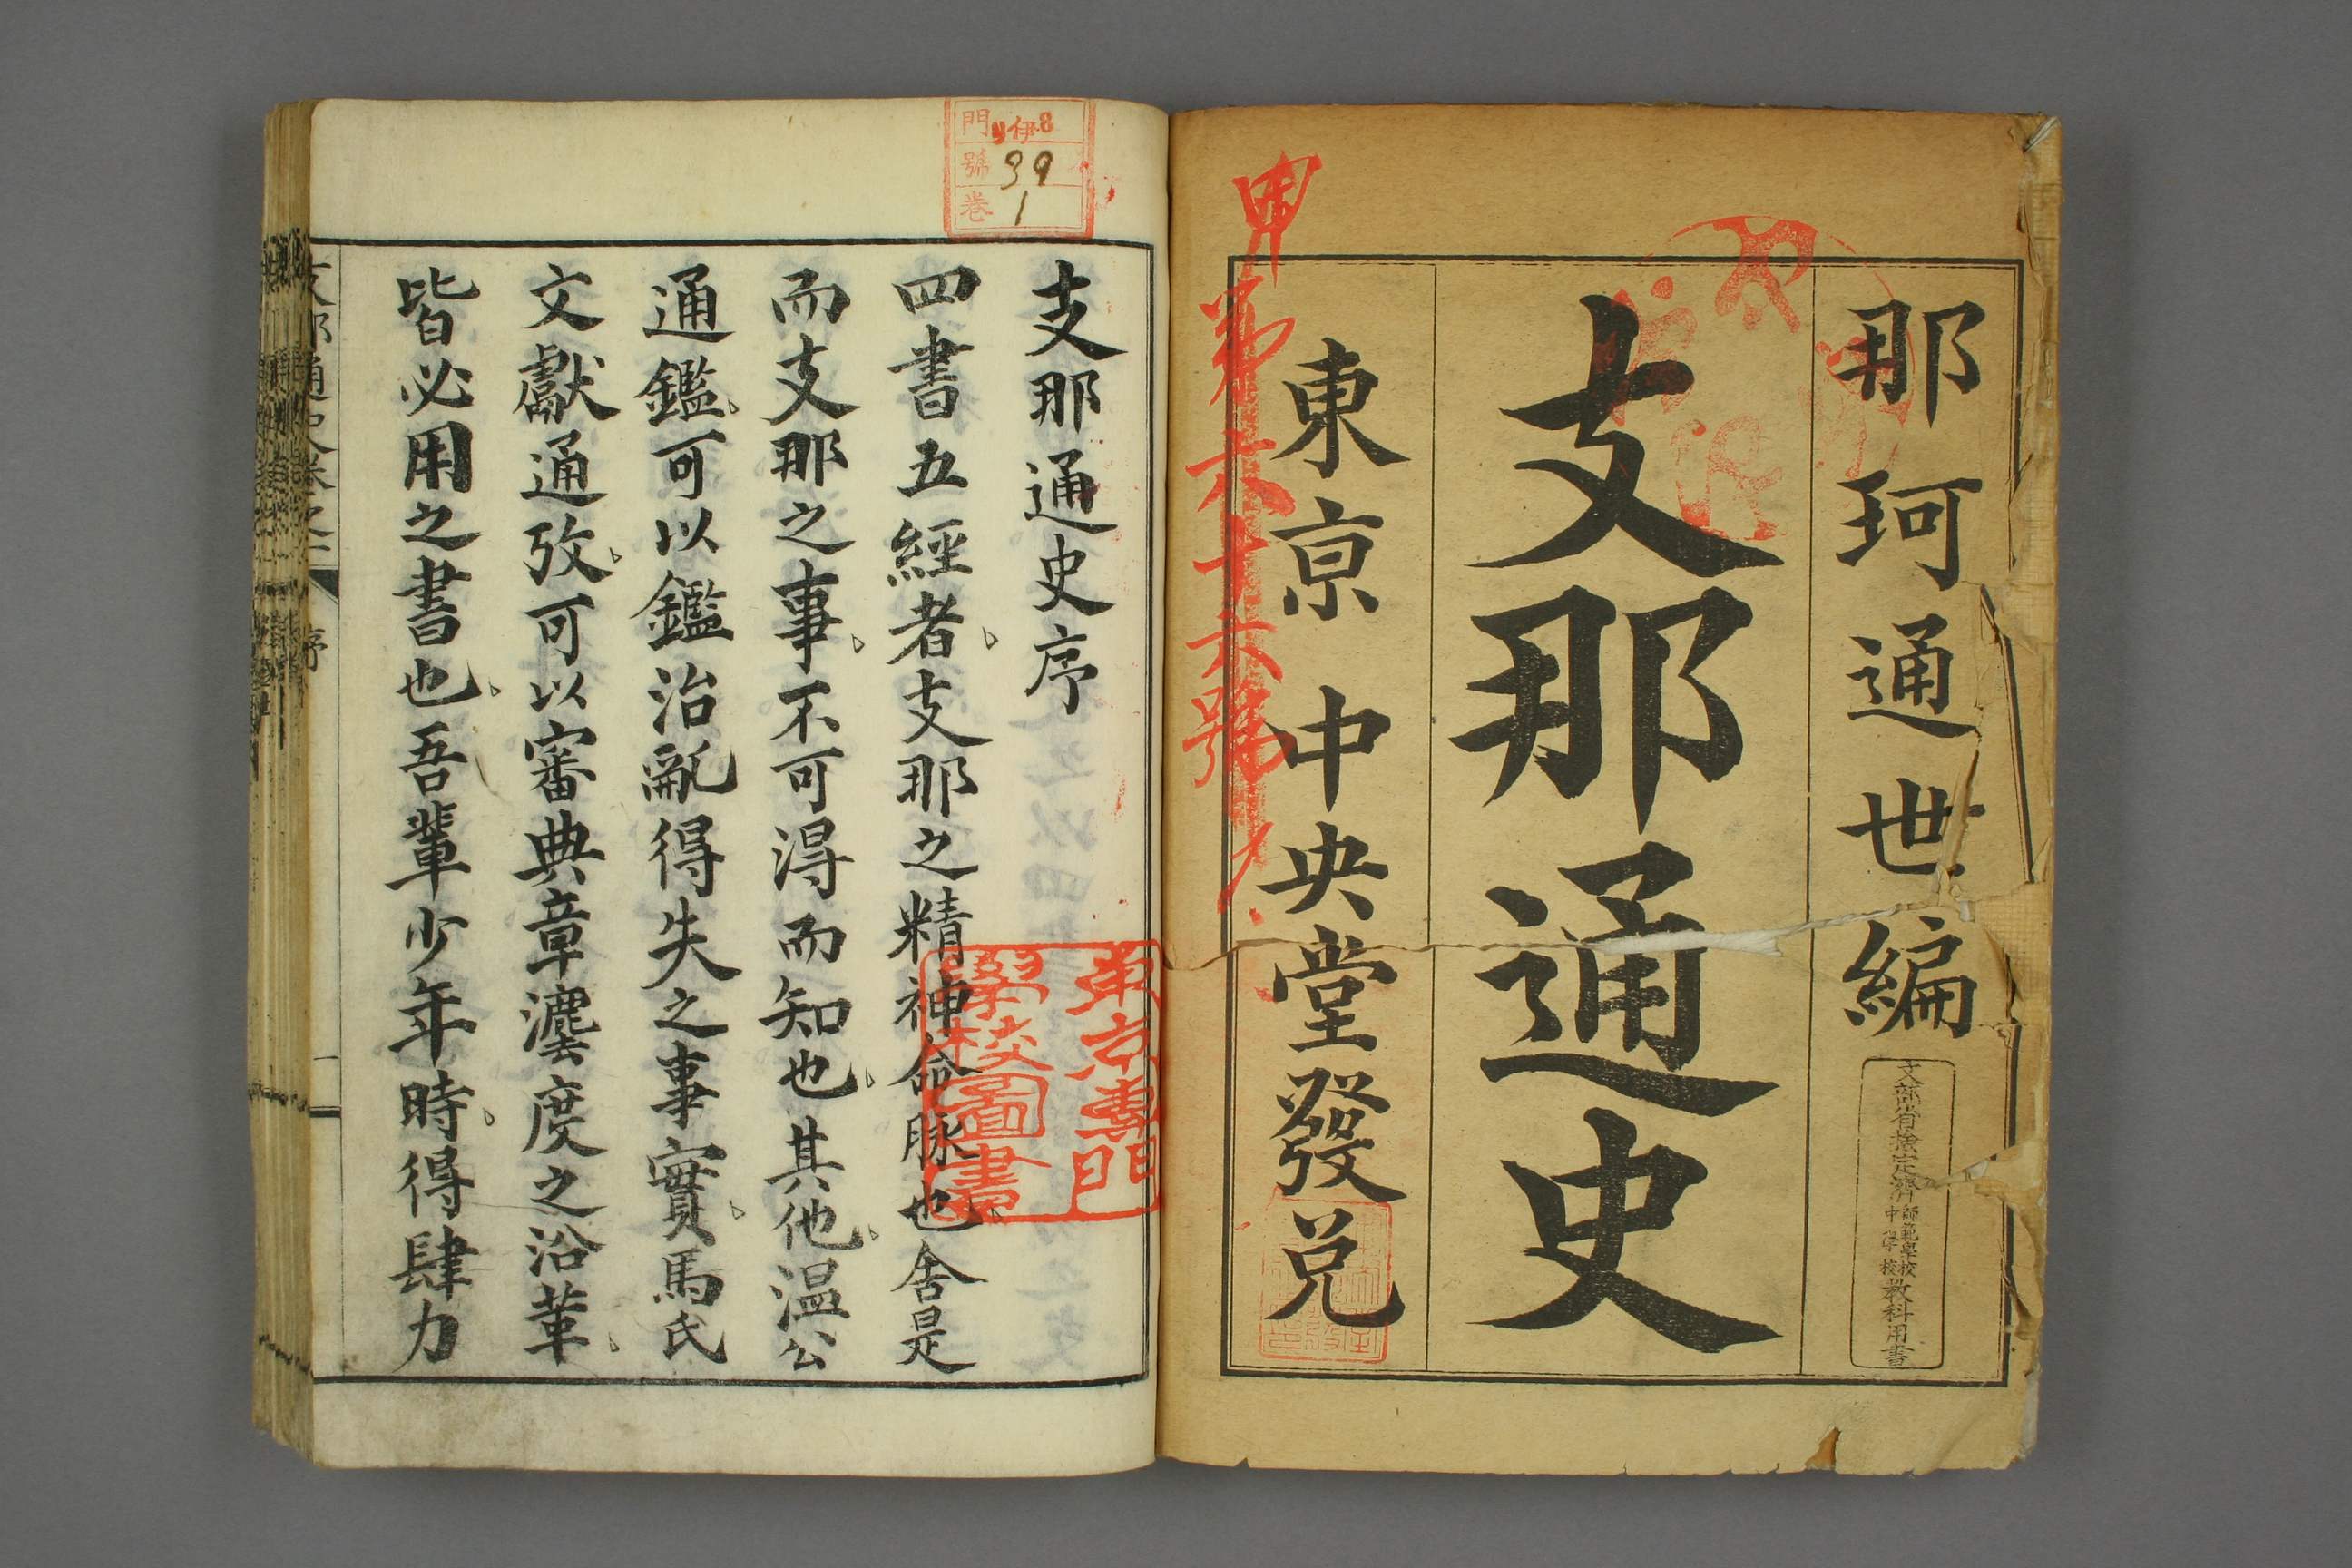 那珂通世編
文部省檢定濟師範學校中學校教科用書
支那通史
東京 中央堂發兌
甲第六十六號
門 伊8
號 39
卷 1
支那通史序
四書五經者支那之精神命脉也舍是
而支那之事不可得而知也其他温公
通鑑可以鑑治亂得失之事實馬氏
文獻通攷可以審典章灋度之沿革
皆必用之書也吾輩少年時得肆力
東京專門
學校圖書
支那通史卷之一 序 一